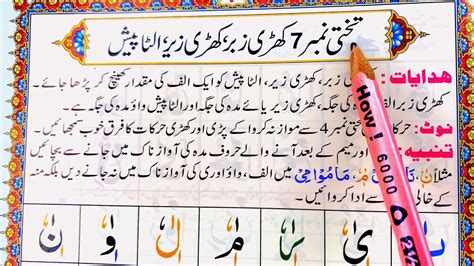 تختی نمبر 7 کھڑی زبر، کھڑی زیر، الٹا پیش
ھدایات: زبر، کھڑی زیر، الٹا پیش کو ایک الف کی مقدار کھینچ کر پڑھا جائے۔
کھڑی زبر الف مدہ کی جگہ، کھڑی زیر یائے مدہ کی جگہ اور الٹا پیش واؤ مدہ کی جگہ ہے۔
نوٹ: حرکات تختی نمبر 4 سے موازنہ کروا کے پڑی اور کھڑی حرکات کا فرق خوب سمجھائیں۔
تنبیہ: اور میم کے بعد آنے والے حروف مدہ کی آواز ناک میں جانے سے بچائیں
مثلاً مَامُوْامِیْ میں الف، واؤ اور ی کی آواز ناک میں نہ جانے دیں بلکہ
منہ کے خالی سے ادا کروائیں۔
How! 6000
نٰ وٰ لٰ مٰ رٰ یٰ